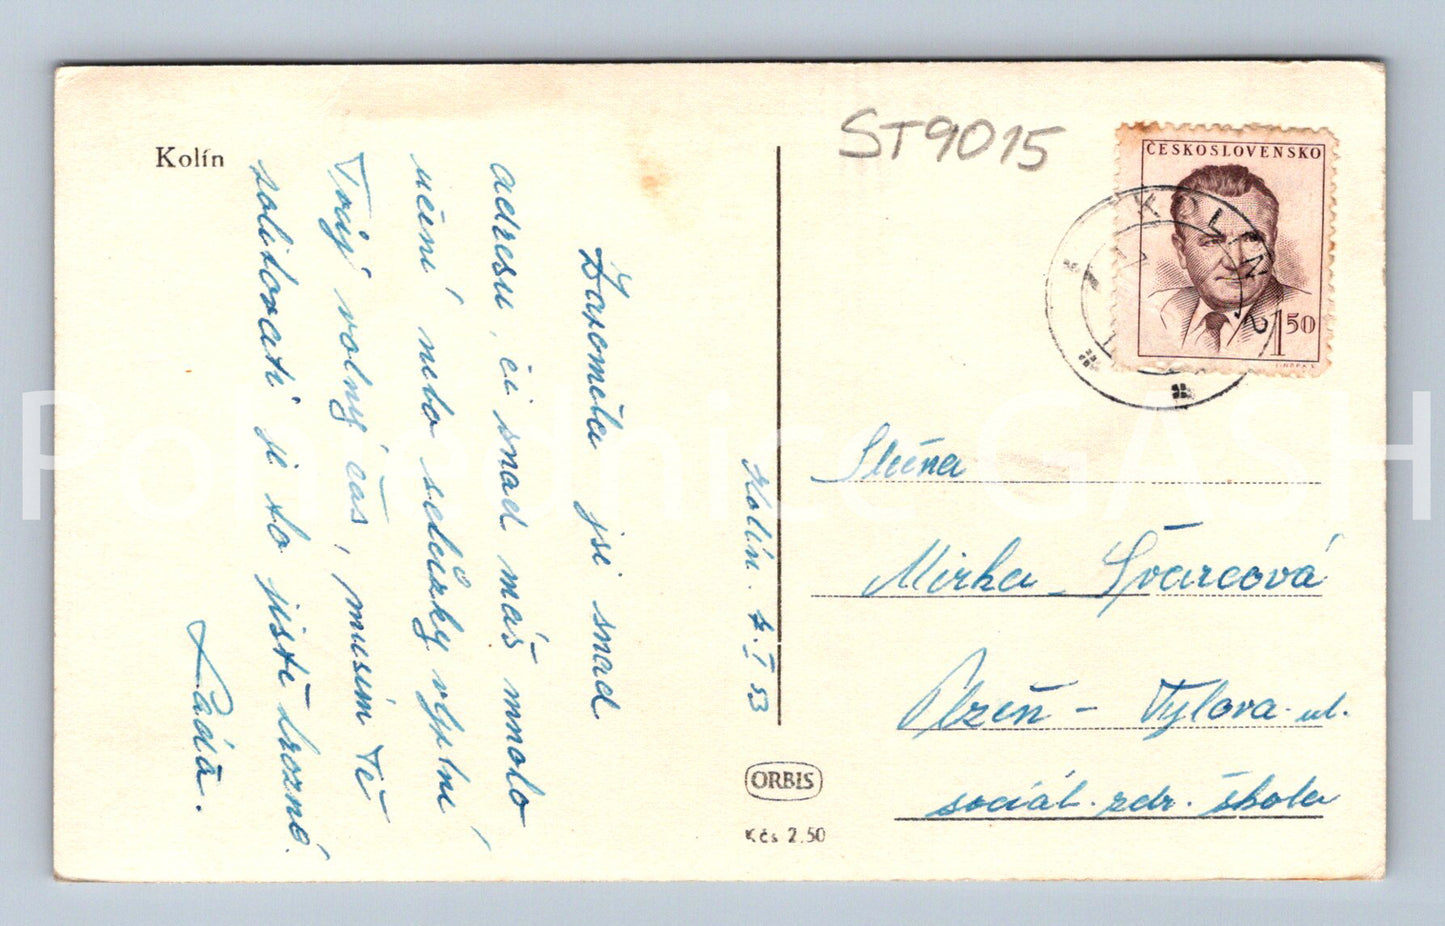 Kolín
ST9015
ČESKOSLOVENSKO
KOLÍN 2
1
50
Zapomela jsi snad
adresu, či snad máš mnoho
učení nebo schůzky vyplní
Tvůj volný čas, musím Tě
politovati je to jistě hrozné.
Láďa.
Kolín. 4. I 53
Slečna
Mirka Švarcová
Plzeň - Tylova ul.
sociál. zdr. škola
ORBIS
Kčs 2.50
Pohlednice GASH